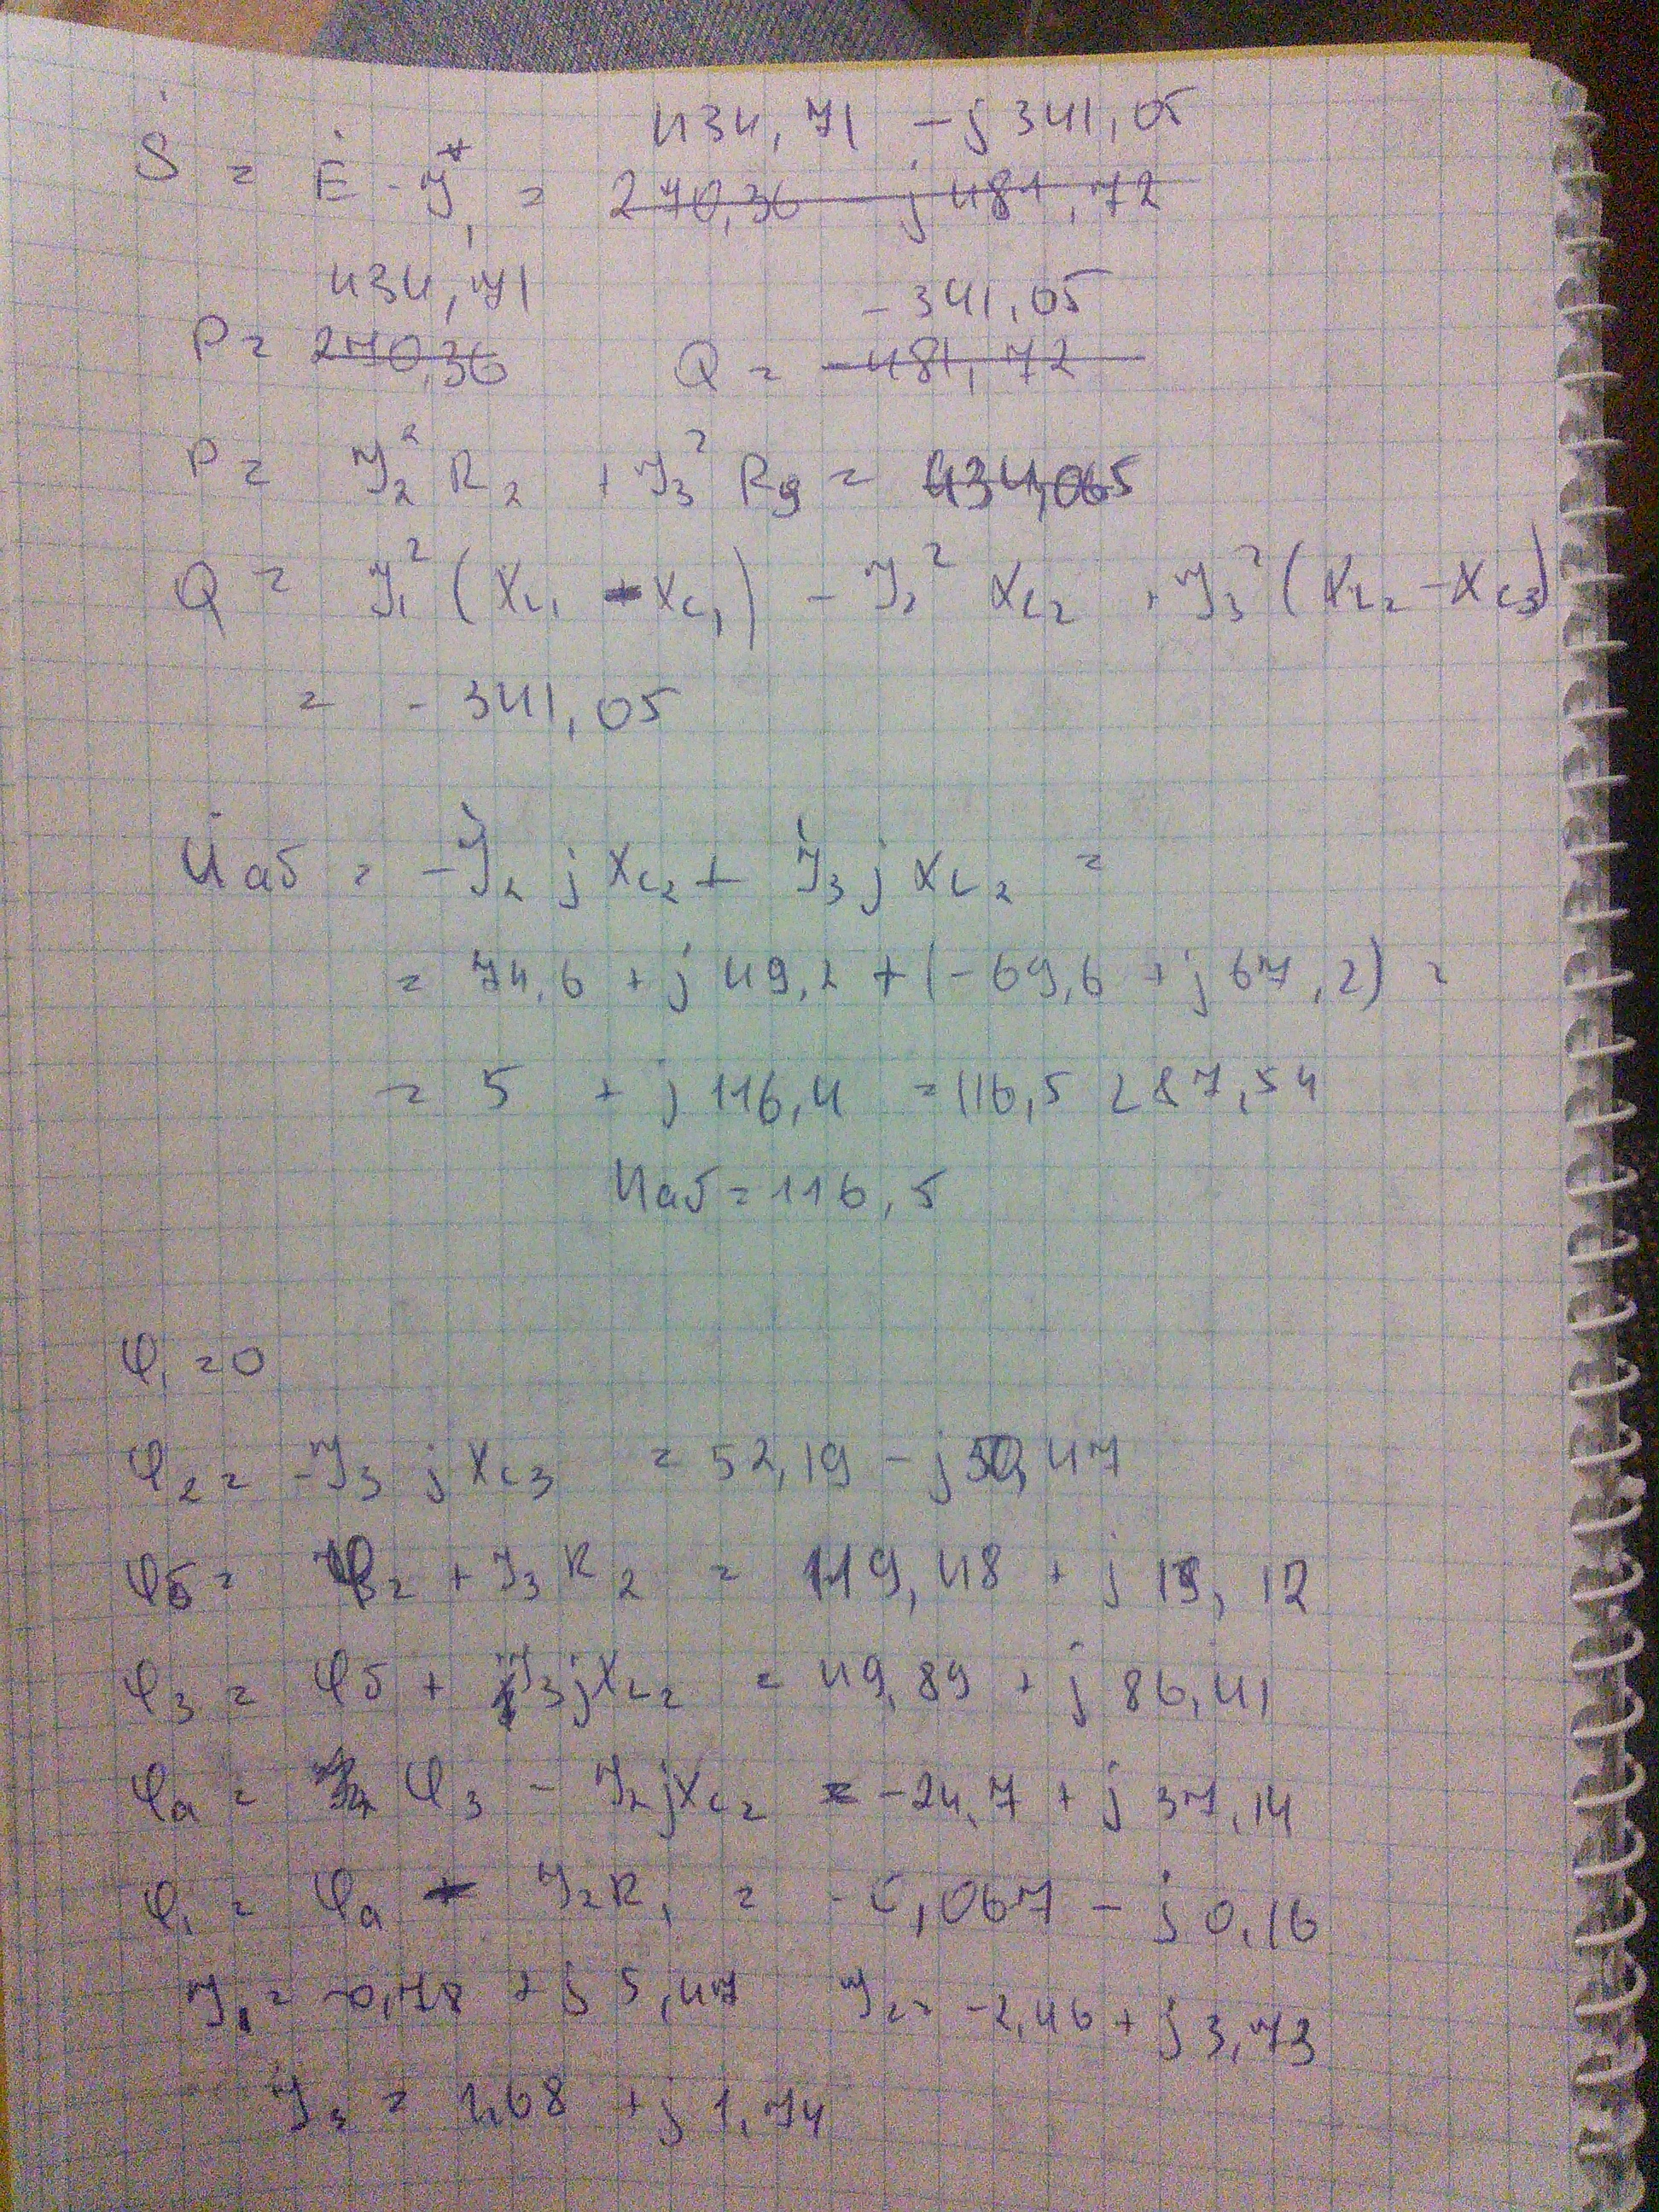 434,71 - j 341,05
Ṡ = Ė · J₁* = 270,36 - j 481,72
434,71 - 341,05
P = 270,36 Q = -481,72
P = J₂² R₂ + J₃² R₃ = 434,065
Q = J₁² (X_L₁ - X_C₁) - J₂² X_C₂ + J₃² (X_L₂ - X_C₃)
= - 341,05
U̇аб = -J̇₂ j X_C₂ + J̇₃ j X_L₂ =
= 74,6 + j 49,2 + (-69,6 + j 67,2) =
= 5 + j 116,4 = 116,5 ∠ 87,54
Uаб = 116,5
φ₁ = 0
φ₂ = -J₃ j X_C₃ = 52,19 - j 50,47
φб = φ₂ + J₃ R₂ = 119,48 + j 19,12
φ₃ = φб + J₃ j X_L₂ = 49,89 + j 86,41
φа = φ₃ - J₂ j X_C₂ = -24,7 + j 37,14
φ₁ = φа - J₂ R₁ = - 0,067 - j 0,16
J₁ = -0,78 + j 5,47 J₂ = -2,46 + j 3,73
J₃ = 1,68 + j 1,74